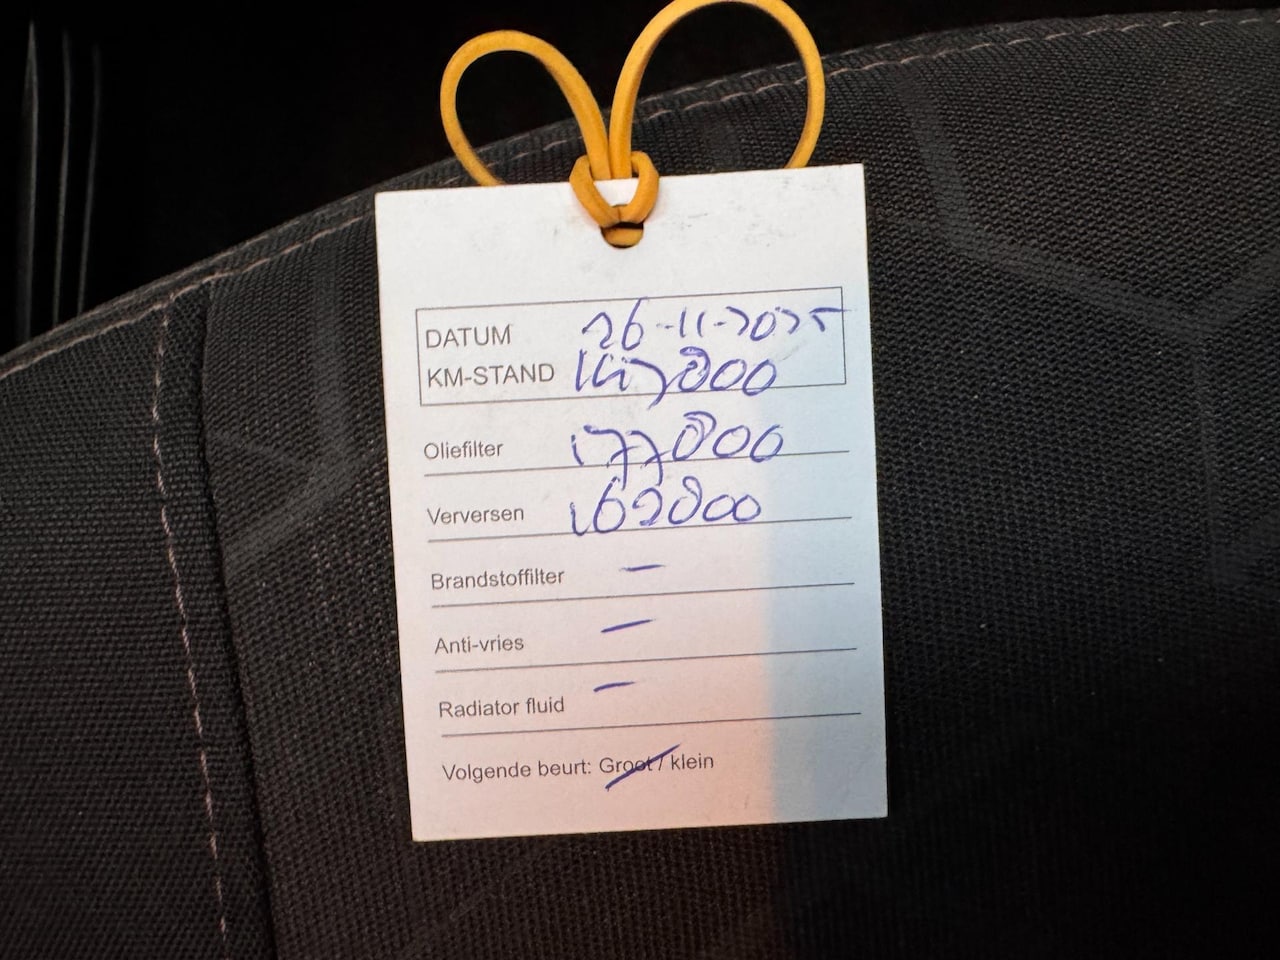 DATUM 26-11-2025
KM-STAND 147000
Oliefilter 177000
Verversen 162000
Brandstoffilter —
Anti-vries —
Radiator fluid —
Volgende beurt: Groot / klein